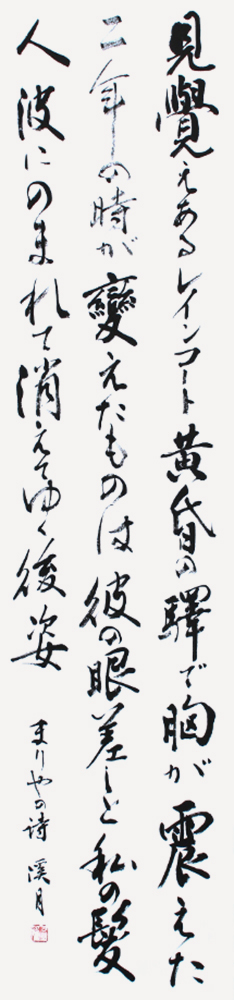 見覺えあるレインコート黄昏の驛で胸が震えた
二年の時が變えたものは彼の眼差しと私の髮
人波にのまれて消えてゆく後姿
まりやの詩 溪月